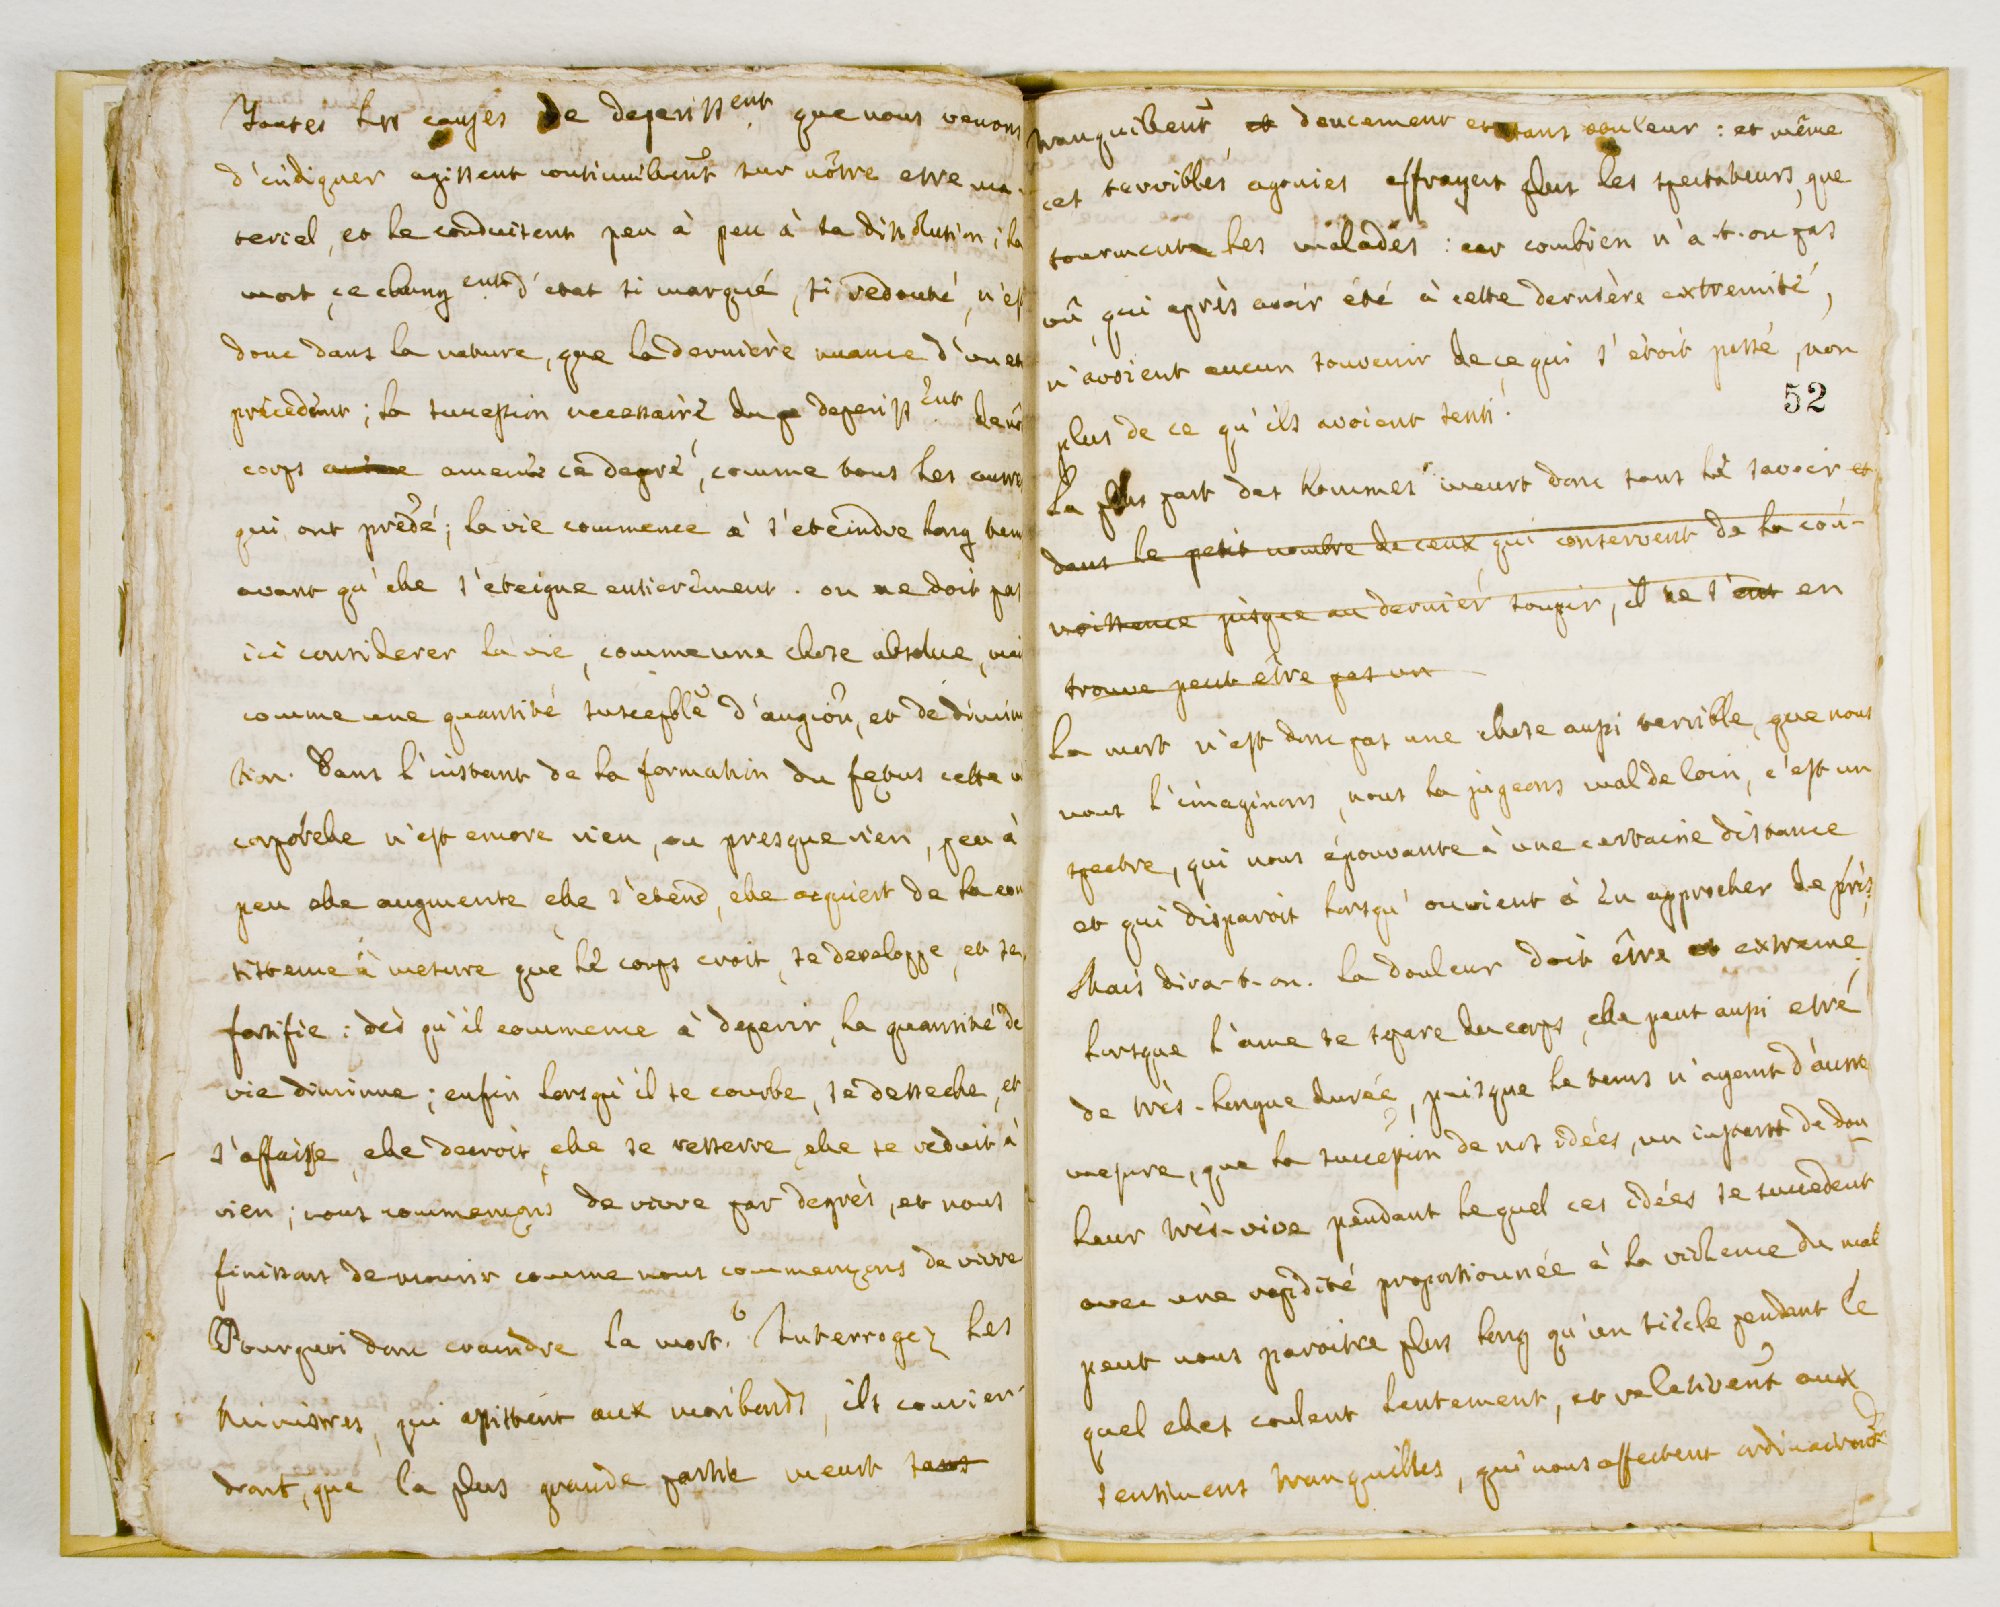 Toutes les causes de deperissent que nous venons
d'indiquer agissent continuillent sur nôtre etre ma-
teriel, et le conduisent peu à peu à sa dissolution; la
mort, ce changent d'etat si marqué, si redouté, n'est
donc dans la nature, que la derniere nuance d'un et
précedent; la succession necessaire du deperissent de nô
corps amene ce degré, comme tous les autres
qui ont précédé; la vie commence à s'eteindre long tem
avant qu'elle s'eteigne entierement. on ne doit pas
ici considerer la vie, comme une chose absolue, mai
comme une quantité susceptble d'augion, et de diminu
tion. Dans l'instant de la formation du fetus cette v
corporelle n'est encore rien, ou presque rien, peu à
peu elle augmente elle s'étend, elle acquiert de la con
sistence à mesure que le corps croit, se developpe, et se
fortifie: dès qu'il commence à deperir, la quantité de
vie diminue; enfin lorsqu'il se courbe, se desseche, et
s'affaisse, elle decroit, elle se resserre, elle se reduit à
rien; nous commençons de vivre par degrès, et nous
finissons de mourir comme nous commençons de vivre
Pourquoi donc craindre la mort? Interrogez les
Ministres, qui assistent aux moribonds, ils convien-
dront, que la plus grande partie meurt sans
tranquillent et doucement et sans douleur: et même
ces terribles agonies effrayent plus les spectateurs, que
tourmente les malades: car combien n'a-t-on pas
vû, qui après avoir été à cette dernière extremité,
n'avoient aucun souvenir de ce qui s'étoit passé, non
52
plus de ce qu'ils avoient senti!
La plus part des hommes meurt donc sans le savoir et
dans le petit nombre de ceux qui conservent de la con-
noissance jusque au dernier soupir, il ne s'ent en
trouve peut être pas un
La mort n'est donc pas une chose aussi terrible, que nous
nous l'imaginons, nous la jugeons mal de loin, c'est un
spectre, qui nous épouvante à une certaine distance
et qui disparoit lorsqu'on vient à en approcher de près,
Mais dira-t-on. la douleur doit être et extreme,
lorsque l'ame se spare du corps, elle peut aussi etre
de très-longue durée, puisque le tems n'ayant d'autre
mesure, que la succession de nos idées, un instant de dou
leur très-vive pendant lequel ces idées se succedent
avec une rapidité proportionnée à la violence du mal
peut nous paroitre plus long qu'un siècle pendant le
quel elles coulent lentement, et relativent aux
sentiment tranquilles, qui nous affectent ordinairent